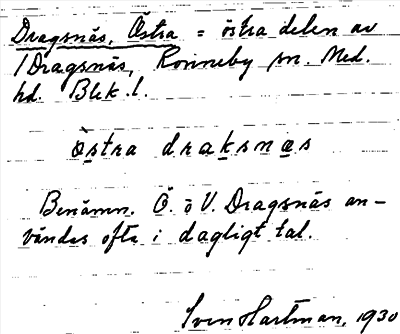 Dragsnäs, Östra = östra delen av
/Dragsnäs, Ronneby sn. Med.
hd. Blek. l.
östra draksnäs
Benämn. Ö. o V. Dragsnäs an-
vändes ofta i dagligt tal.
Sven Hartman, 1930